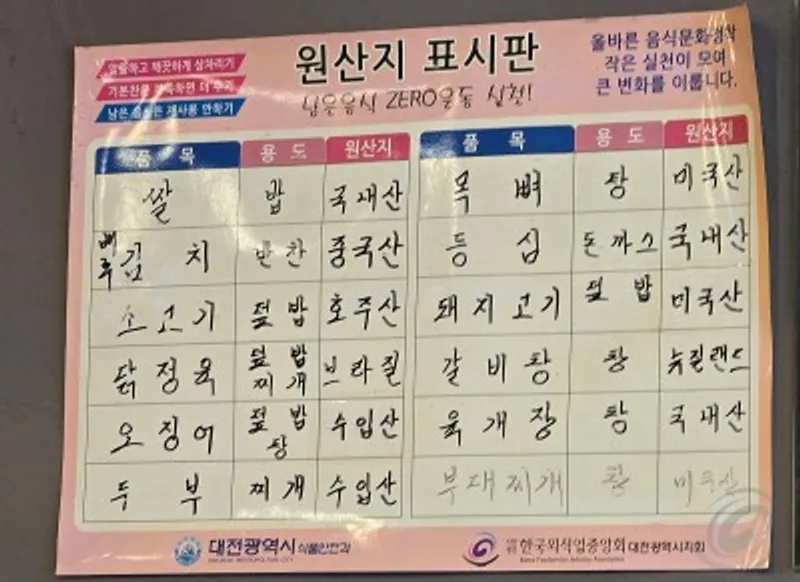 알뜰하고 깨끗하게 상차리기
기본찬은 부족하면 더 주기
남은 음식은 재사용 안하기
원산지 표시판
남은음식 ZERO운동 실천!
올바른 음식문화정착
작은 실천이 모여
큰 변화를 이룹니다.
품 목 용 도 원산지
쌀 밥 국내산
배추 김 치 반찬 중국산
소고기 덮밥 호주산
닭정육 덮밥 찌개 브라질
오징어 덮밥 탕 수입산
두 부 찌개 수입산
품 목 용 도 원산지
목 뼈 탕 미국산
등 심 돈까스 국내산
돼지고기 덮밥 미국산
갈비탕 탕 뉴질랜드
육개장 탕 국내산
부대찌개 탕 미국산
대전광역시 식품안전과
DAEJEON METROPOLITAN CITY
한국외식업중앙회 대전광역시지회
Korea Foodservice Industry Association